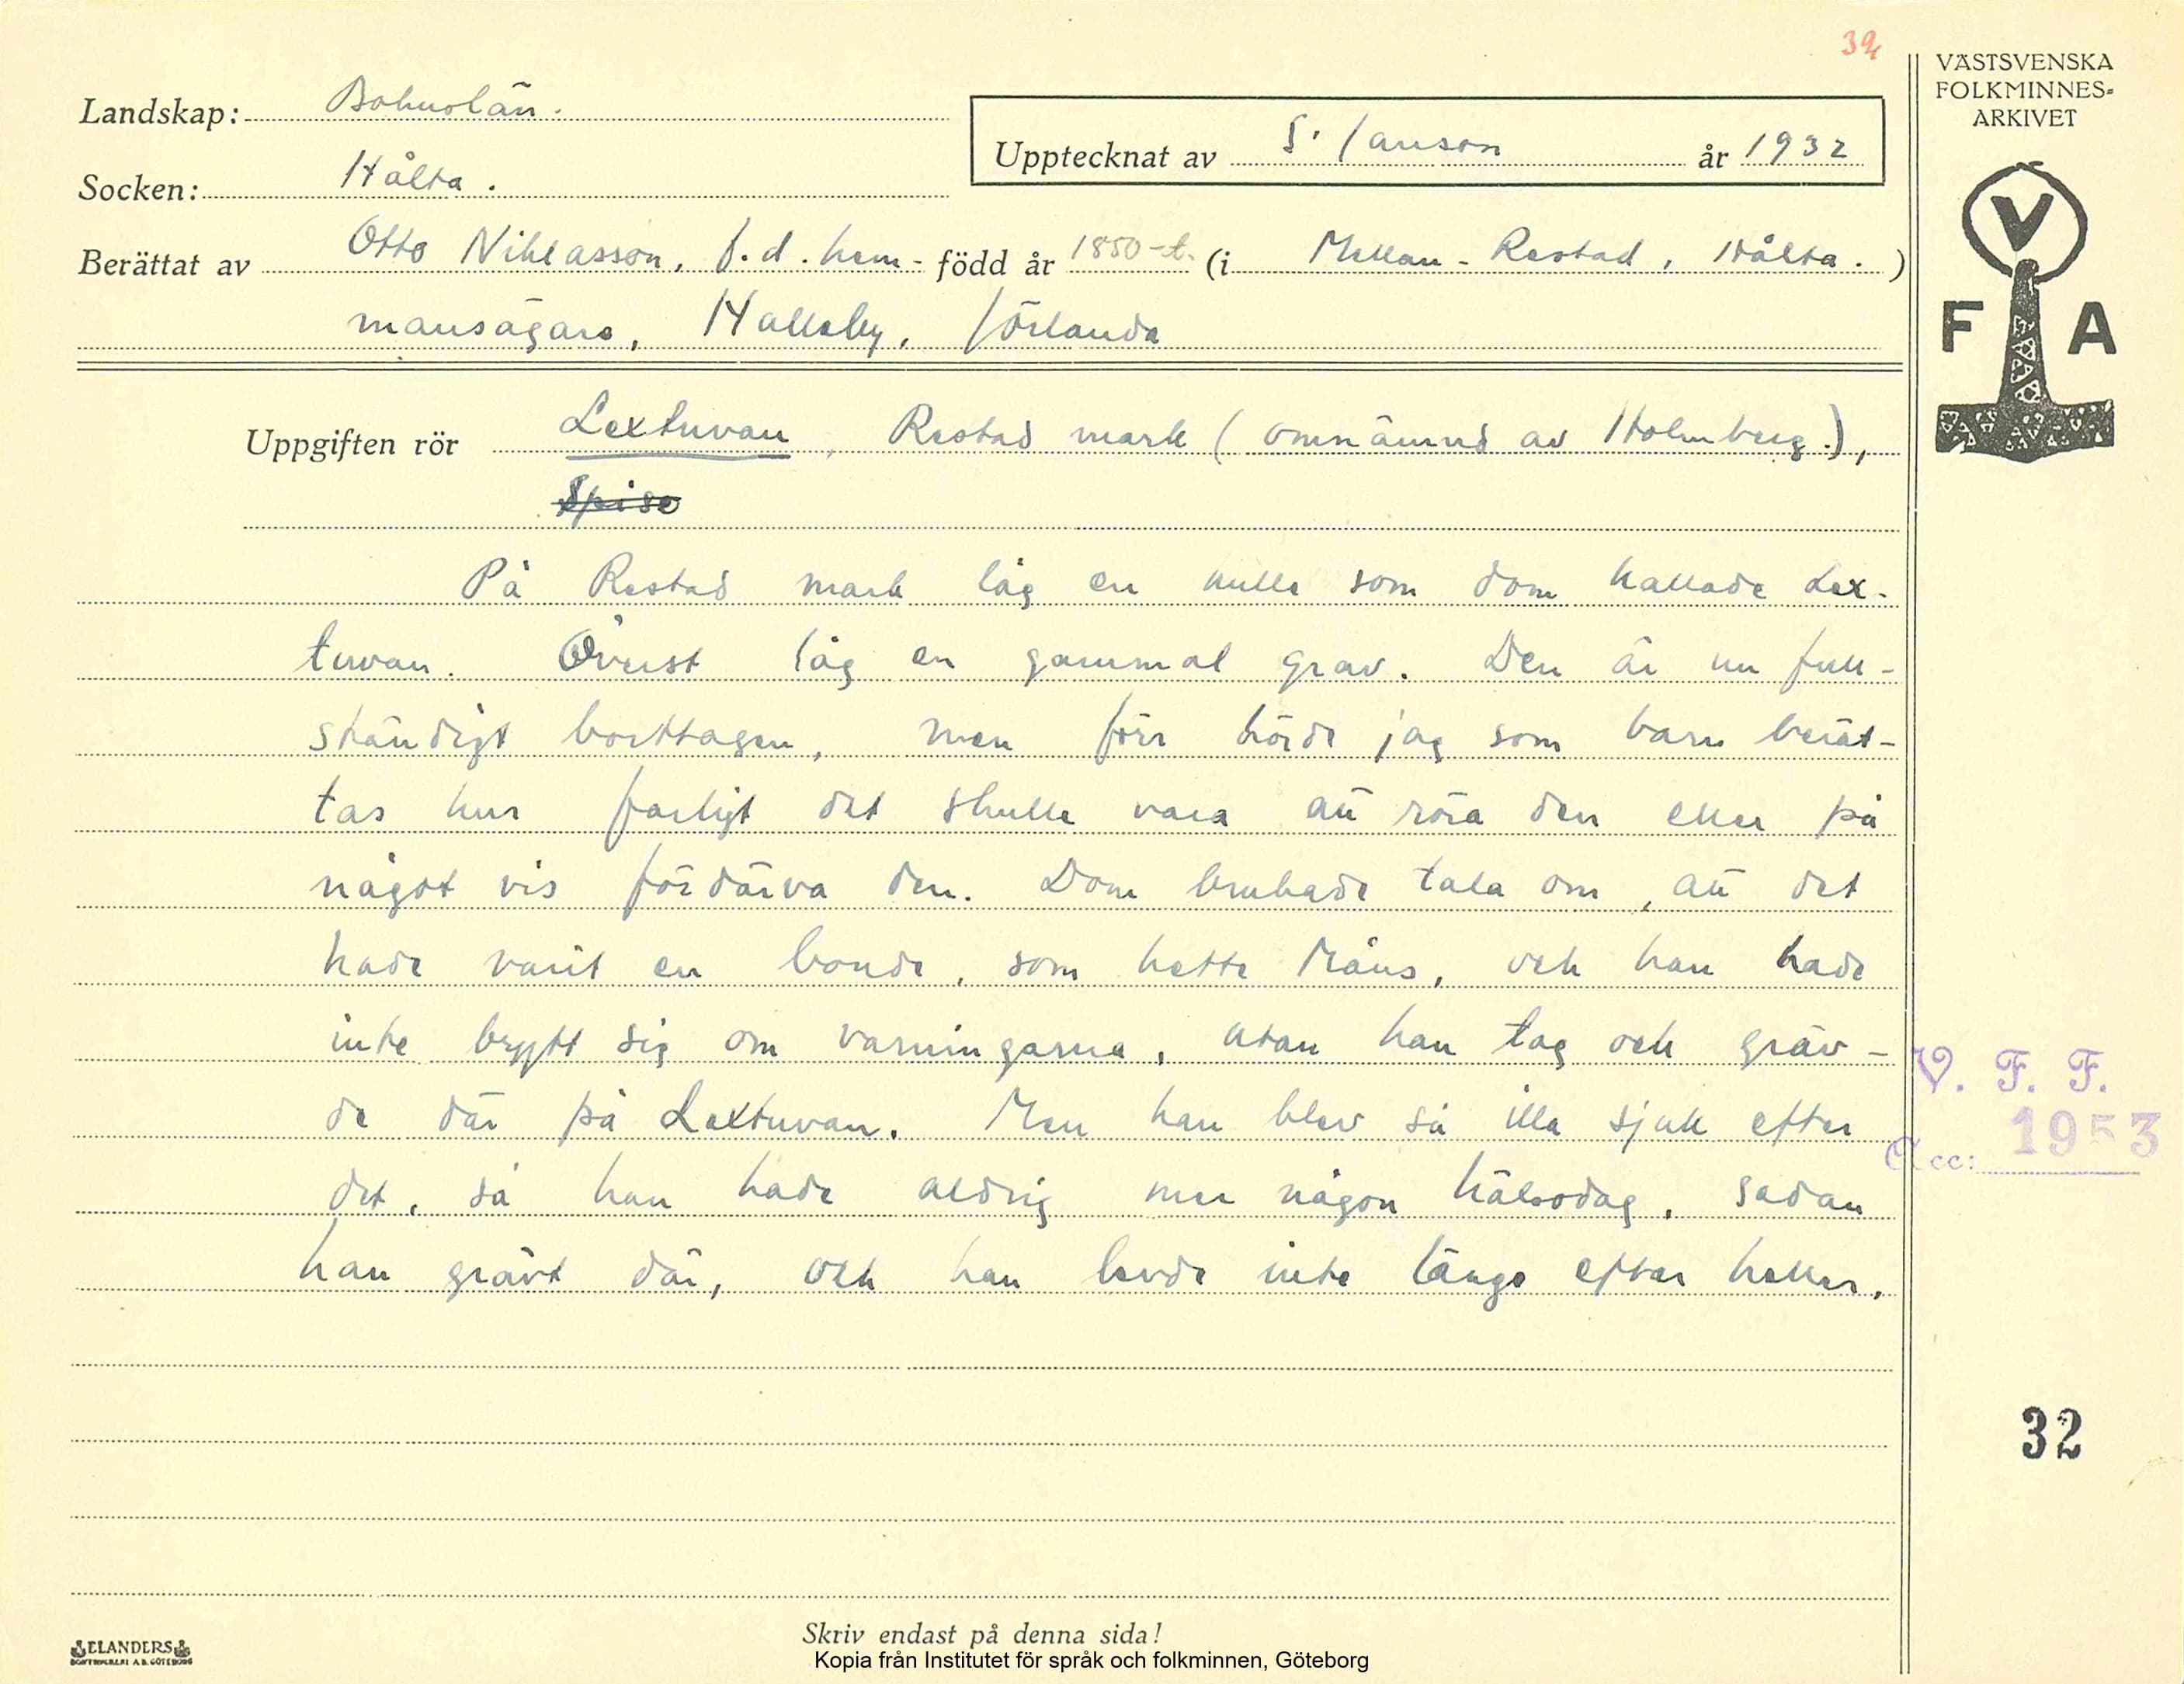 39
VÄSTSVENSKA
FOLKMINNES-
ARKIVET
Landskap: Bohuslän.
Upptecknat av S. Janson år 1932
Socken: Hålta.
Berättat av Otto Niklasson, f.d. hem- född år 1850-t. (i Mellan-Restad, Hålta.)
mansägare, Halleby, Jörlanda
V
F A
Uppgiften rör Lextuvan, Restad mark (omnämnd av Holmberg.),
Spise
På Restad mark låg en kulle som dom kallade Lex-
tuvan. Överst låg en gammal grav. Den är nu full-
ständigt borttagen, men förr hörde jag som barn berät-
tas hur farligt det skulle vara att röra den eller på
något vis fördärva den. Dom brukade tala om, att det
hade varit en bonde, som hette Måns, och han hade
inte brytt sig om varningarna, utan han tog och gräv-
de där på Lextuvan. Men han blev så illa sjuk efter
det, så han hade aldrig mer någon hälsodag, sadan
han grävt där, och han levde inte länge efter heller.
V. F. F.
Acc: 1953
32
Skriv endast på denna sida!
ELANDERS
BOKTRYCKERI A.B. GÖTEBORG
Kopia från Institutet för språk och folkminnen, Göteborg